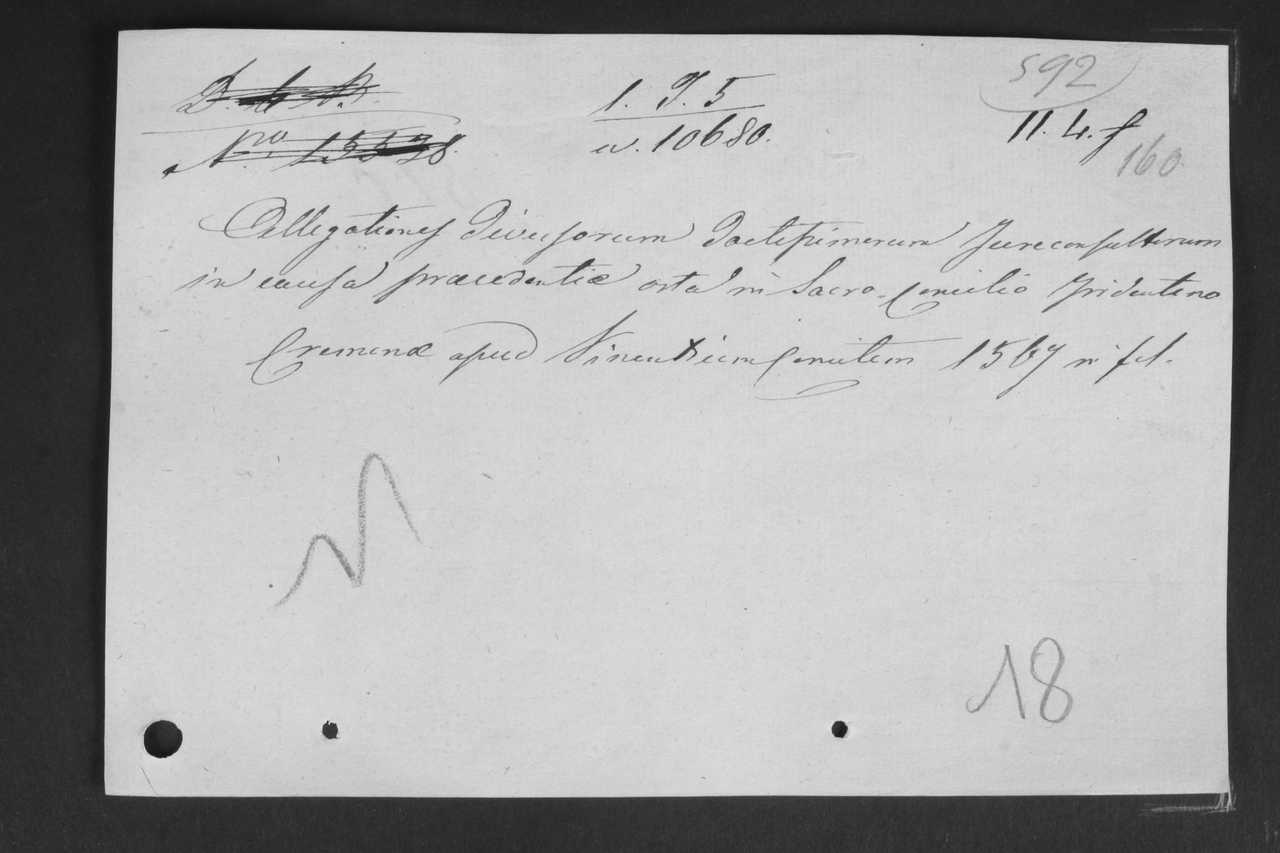 592
1. J. 5
11. 4. f
Nro 15538.
a. 10680.
160
Allegationes Diversorum Doctissimorum Jureconsultorum
in causa praecedentiæ orta in Sacro-Concilio Tridentino
Cremonæ apud Vincentium Comitem 1567 in fol.
18